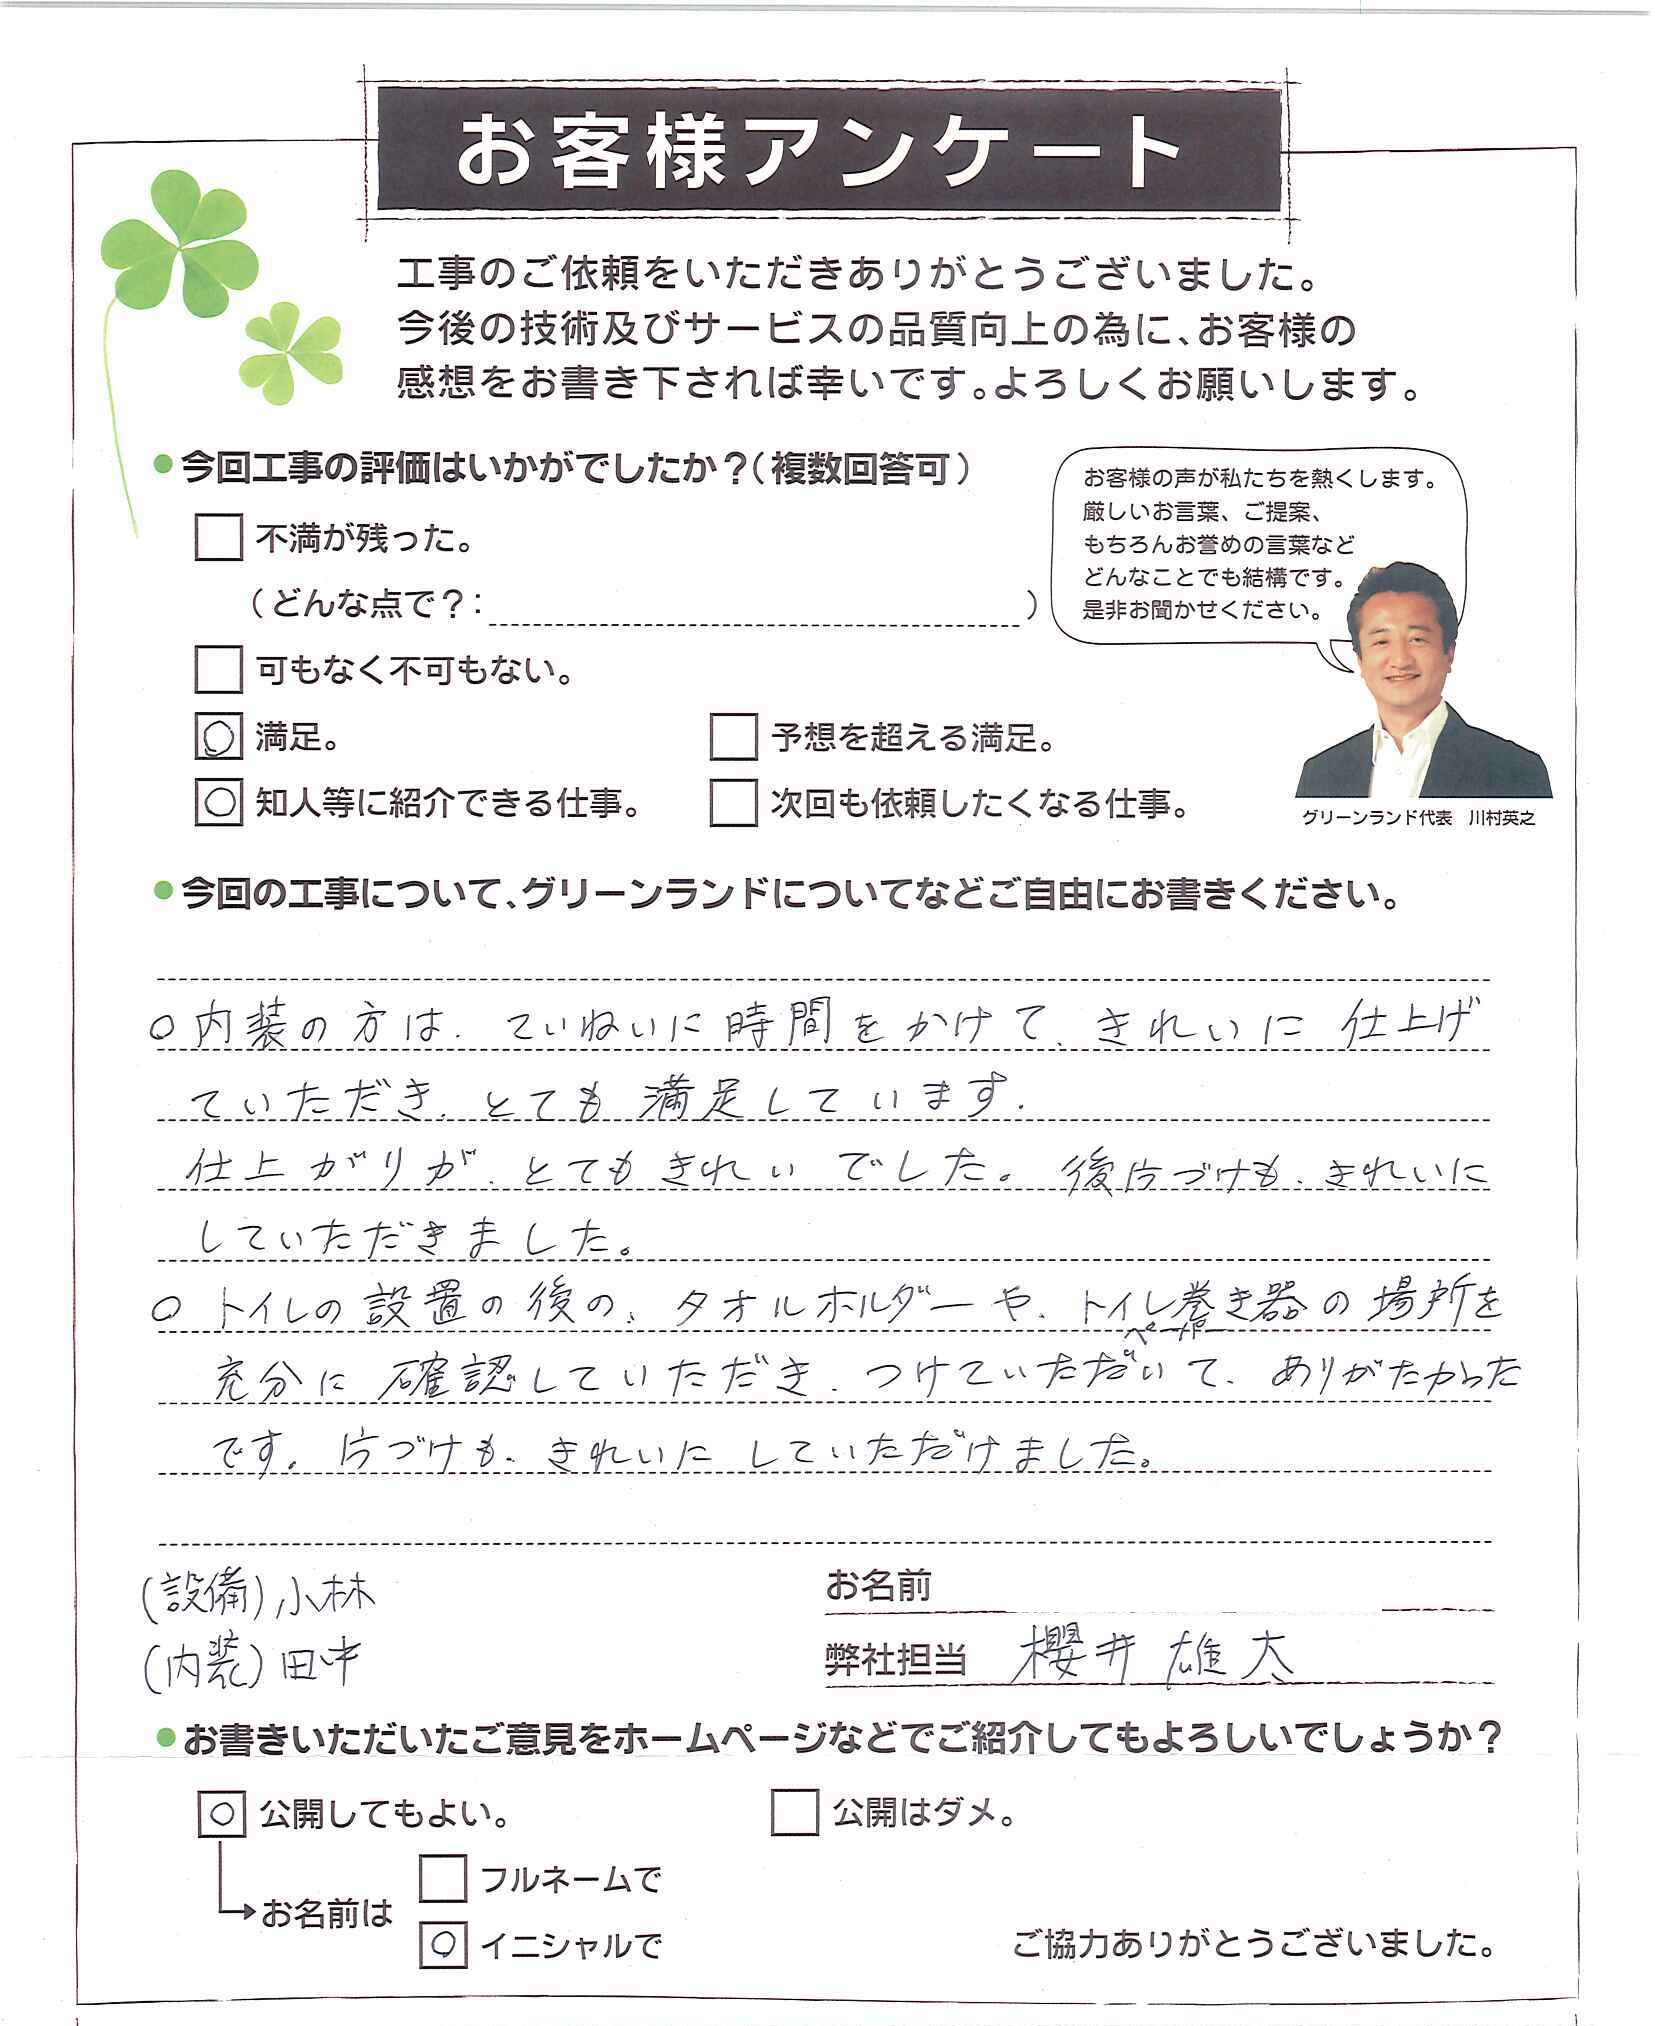 お客様アンケート
工事のご依頼をいただきありがとうございました。
今後の技術及びサービスの品質向上の為に、お客様の
感想をお書き下されば幸いです。よろしくお願いします。
●今回工事の評価はいかがでしたか？（複数回答可）
不満が残った。
（どんな点で？： ）
可もなく不可もない。
○ 満足。
予想を超える満足。
○ 知人等に紹介できる仕事。
次回も依頼したくなる仕事。
お客様の声が私たちを熱くします。
厳しいお言葉、ご提案、
もちろんお誉めの言葉など
どんなことでも結構です。
是非お聞かせください。
グリーンランド代表 川村英之
●今回の工事について、グリーンランドについてなどご自由にお書きください。
○内装の方は、ていねいに時間をかけて、きれいに仕上げ
ていただき、とても満足しています。
仕上がりが、とてもきれいでした。後片づけも、きれいに
していただきました。
○トイレの設置の後の、タオルホルダーや、トイレ巻き器の場所を
ペーパー
充分に確認していただき、つけていただいて、ありがたかった
です。片づけも、きれいにしていただけました。
(設備)小林
(内装)田中
お名前
弊社担当 櫻井雄太
●お書きいただいたご意見をホームページなどでご紹介してもよろしいでしょうか？
○ 公開してもよい。
公開はダメ。
お名前は
フルネームで
○ イニシャルで
ご協力ありがとうございました。